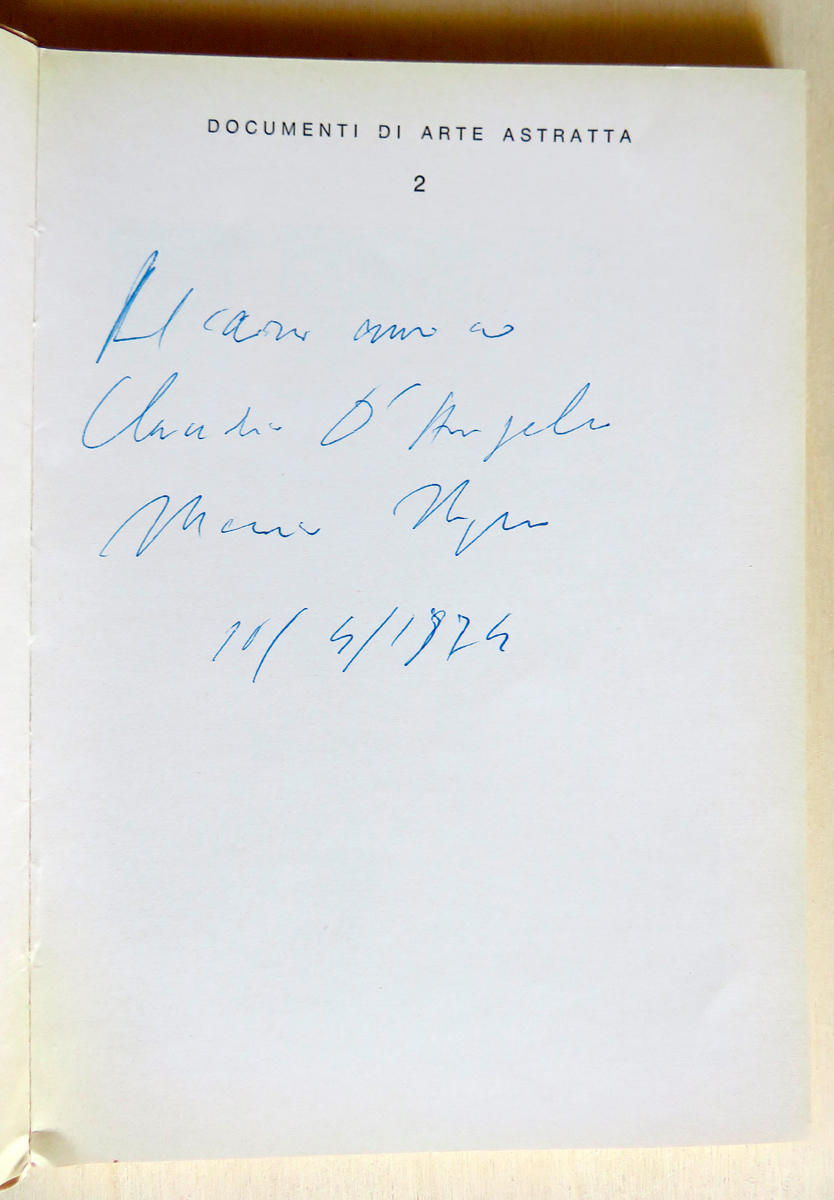 DOCUMENTI DI ARTE ASTRATTA
2
Al caro amico
Claudio D'Angelo
Mario Nigro
10/4/1974